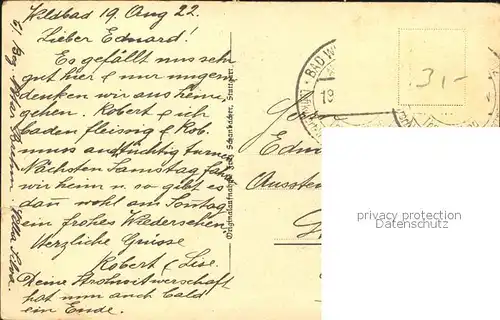 Wildbad 19 Aug 22.
Lieber Eduard!
Es gefällt uns sehr
gut hier & nur ungern
denken wir ans heim-
gehen. Robert & ich
baden fleissig & Rob.
muss auch tüchtig turnen
Nächsten Samstag fahren
wir heim u. so gibt es
dan wohl am Sontag
ein frohes Wiedersehen
Herzliche Grüsse
Robert & Lise.
Deine Strohwitwerschaft
hat nun auch bald
ein Ende.
Originalaufnahme Schönbacher, Stuttgart
BAD W
19
3,-
Herrn
Edm
Ausste
privacy protection
Datenschutz